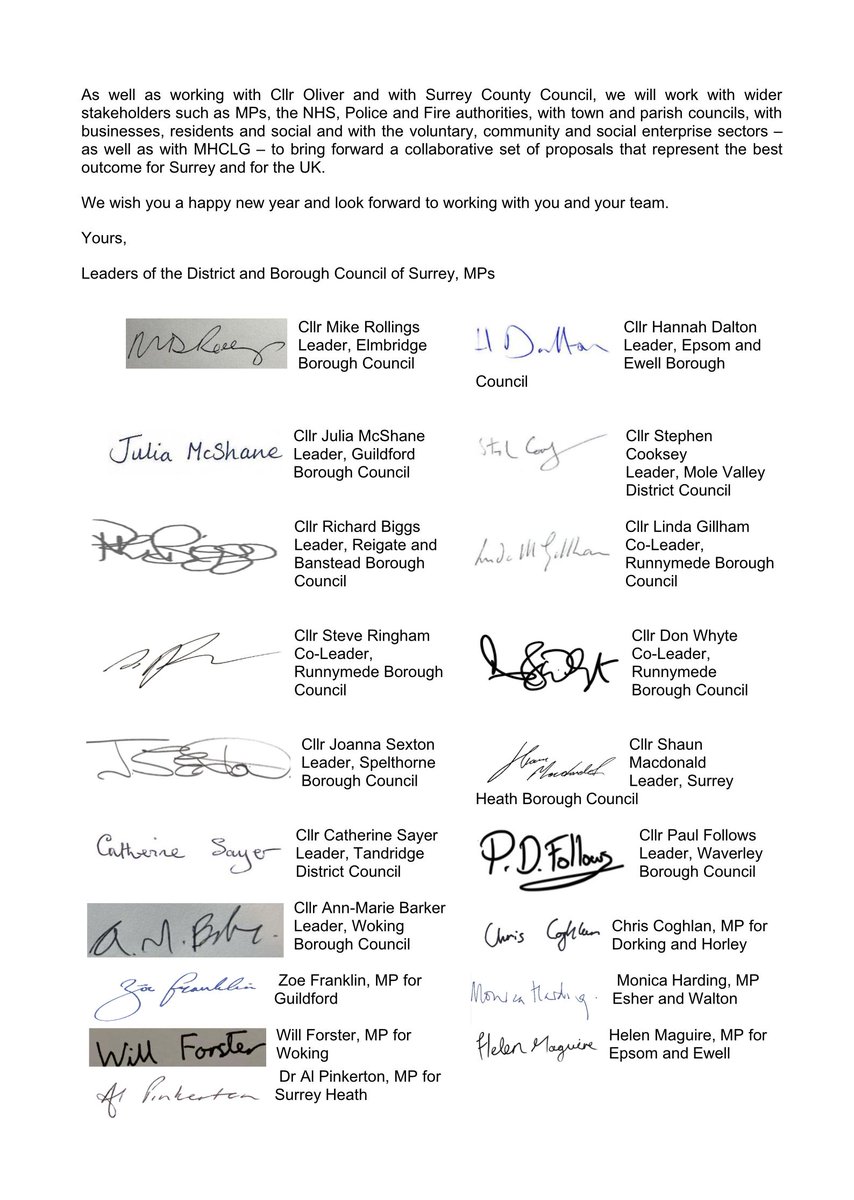 As well as working with Cllr Oliver and with Surrey County Council, we will work with wider
stakeholders such as MPs, the NHS, Police and Fire authorities, with town and parish councils, with
businesses, residents and social and with the voluntary, community and social enterprise sectors –
as well as with MHCLG – to bring forward a collaborative set of proposals that represent the best
outcome for Surrey and for the UK.
We wish you a happy new year and look forward to working with you and your team.
Yours,
Leaders of the District and Borough Council of Surrey, MPs
Cllr Mike Rollings
Leader, Elmbridge
Borough Council
H Dalton
Cllr Hannah Dalton
Leader, Epsom and
Ewell Borough
Council
Julia McShane
Cllr Julia McShane
Leader, Guildford
Borough Council
Cllr Stephen
Cooksey
Leader, Mole Valley
District Council
Cllr Richard Biggs
Leader, Reigate and
Banstead Borough
Council
Linda M Gillham
Cllr Linda Gillham
Co-Leader,
Runnymede Borough
Council
Cllr Steve Ringham
Co-Leader,
Runnymede Borough
Council
Cllr Don Whyte
Co-Leader,
Runnymede
Borough Council
J Sexton
Cllr Joanna Sexton
Leader, Spelthorne
Borough Council
Shaun
Macdonald
Cllr Shaun
Macdonald
Leader, Surrey
Heath Borough Council
Catherine Sayer
Cllr Catherine Sayer
Leader, Tandridge
District Council
P.D.Follows
Cllr Paul Follows
Leader, Waverley
Borough Council
Cllr Ann-Marie Barker
Leader, Woking
Borough Council
Chris Coghlan
Chris Coghlan, MP for
Dorking and Horley
Zoe Franklin
Zoe Franklin, MP for
Guildford
Monica Harding.
Monica Harding, MP
Esher and Walton
Will Forster
Will Forster, MP for
Woking
Helen Maguire
Helen Maguire, MP for
Epsom and Ewell
Al Pinkerton
Dr Al Pinkerton, MP for
Surrey Heath